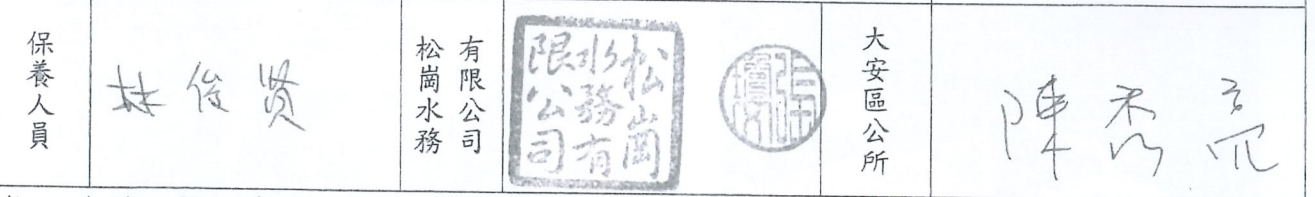 保養人員
林俊贤
松崗水務
有限公司
松崗
水務有
限公司
大安區公所
陳
亮